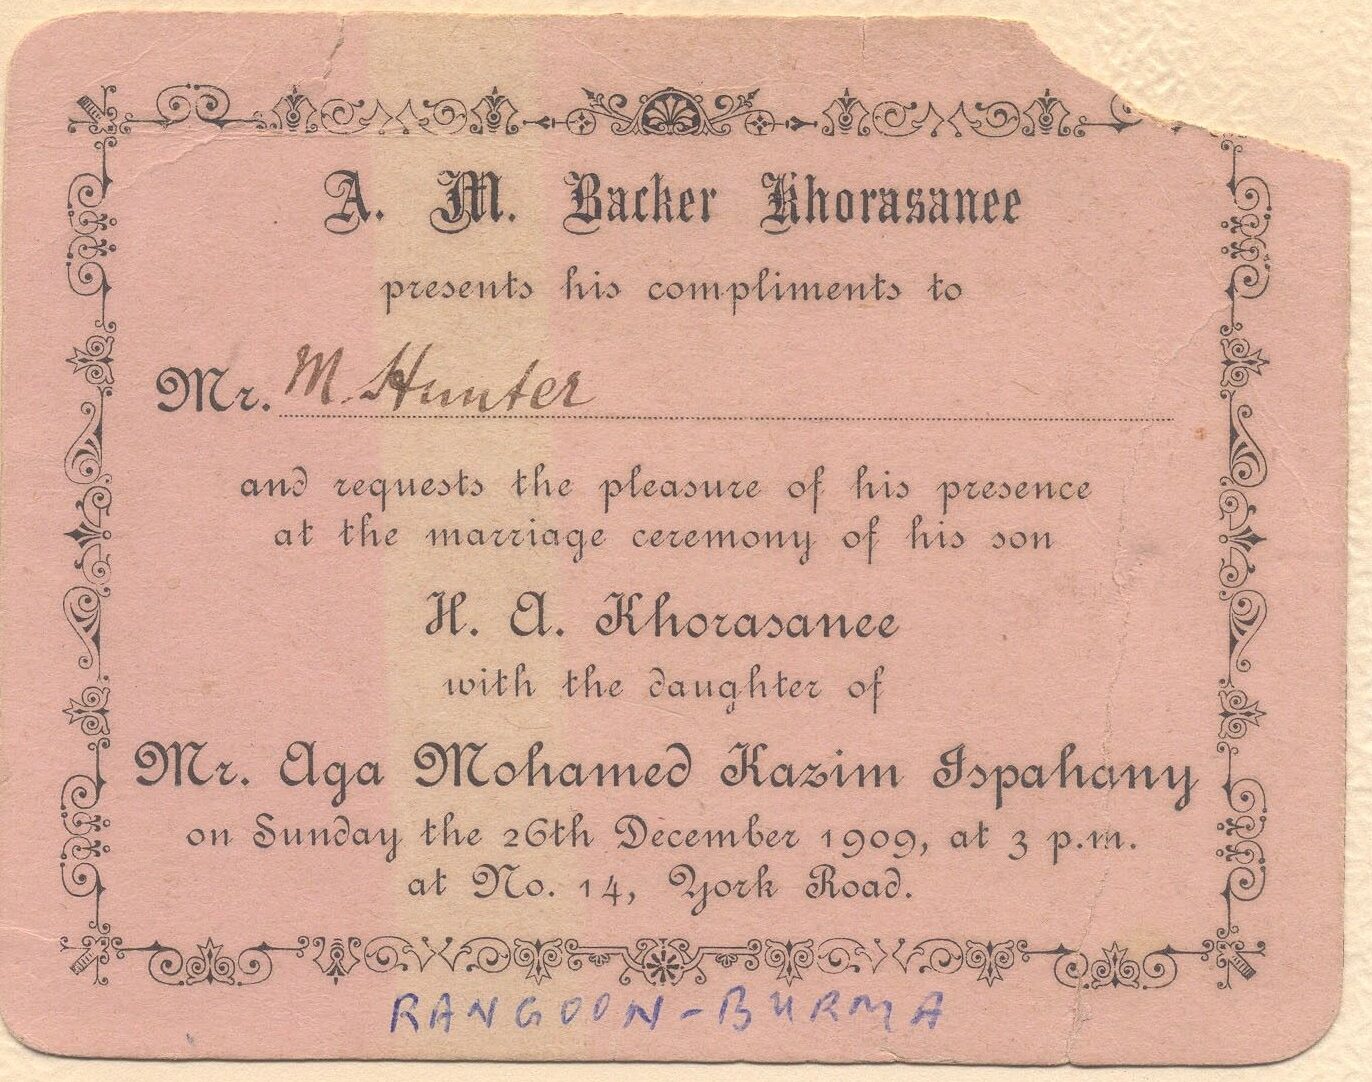 A. M. Backer Khorasanee
presents his compliments to
Mr. M. Hunter
and requests the pleasure of his presence
at the marriage ceremony of his son
H. A. Khorasanee
with the daughter of
Mr. Aga Mohamed Kazim Ispahany
on Sunday the 26th December 1909, at 3 p.m.
at No. 14, York Road.
RANGOON-BURMA